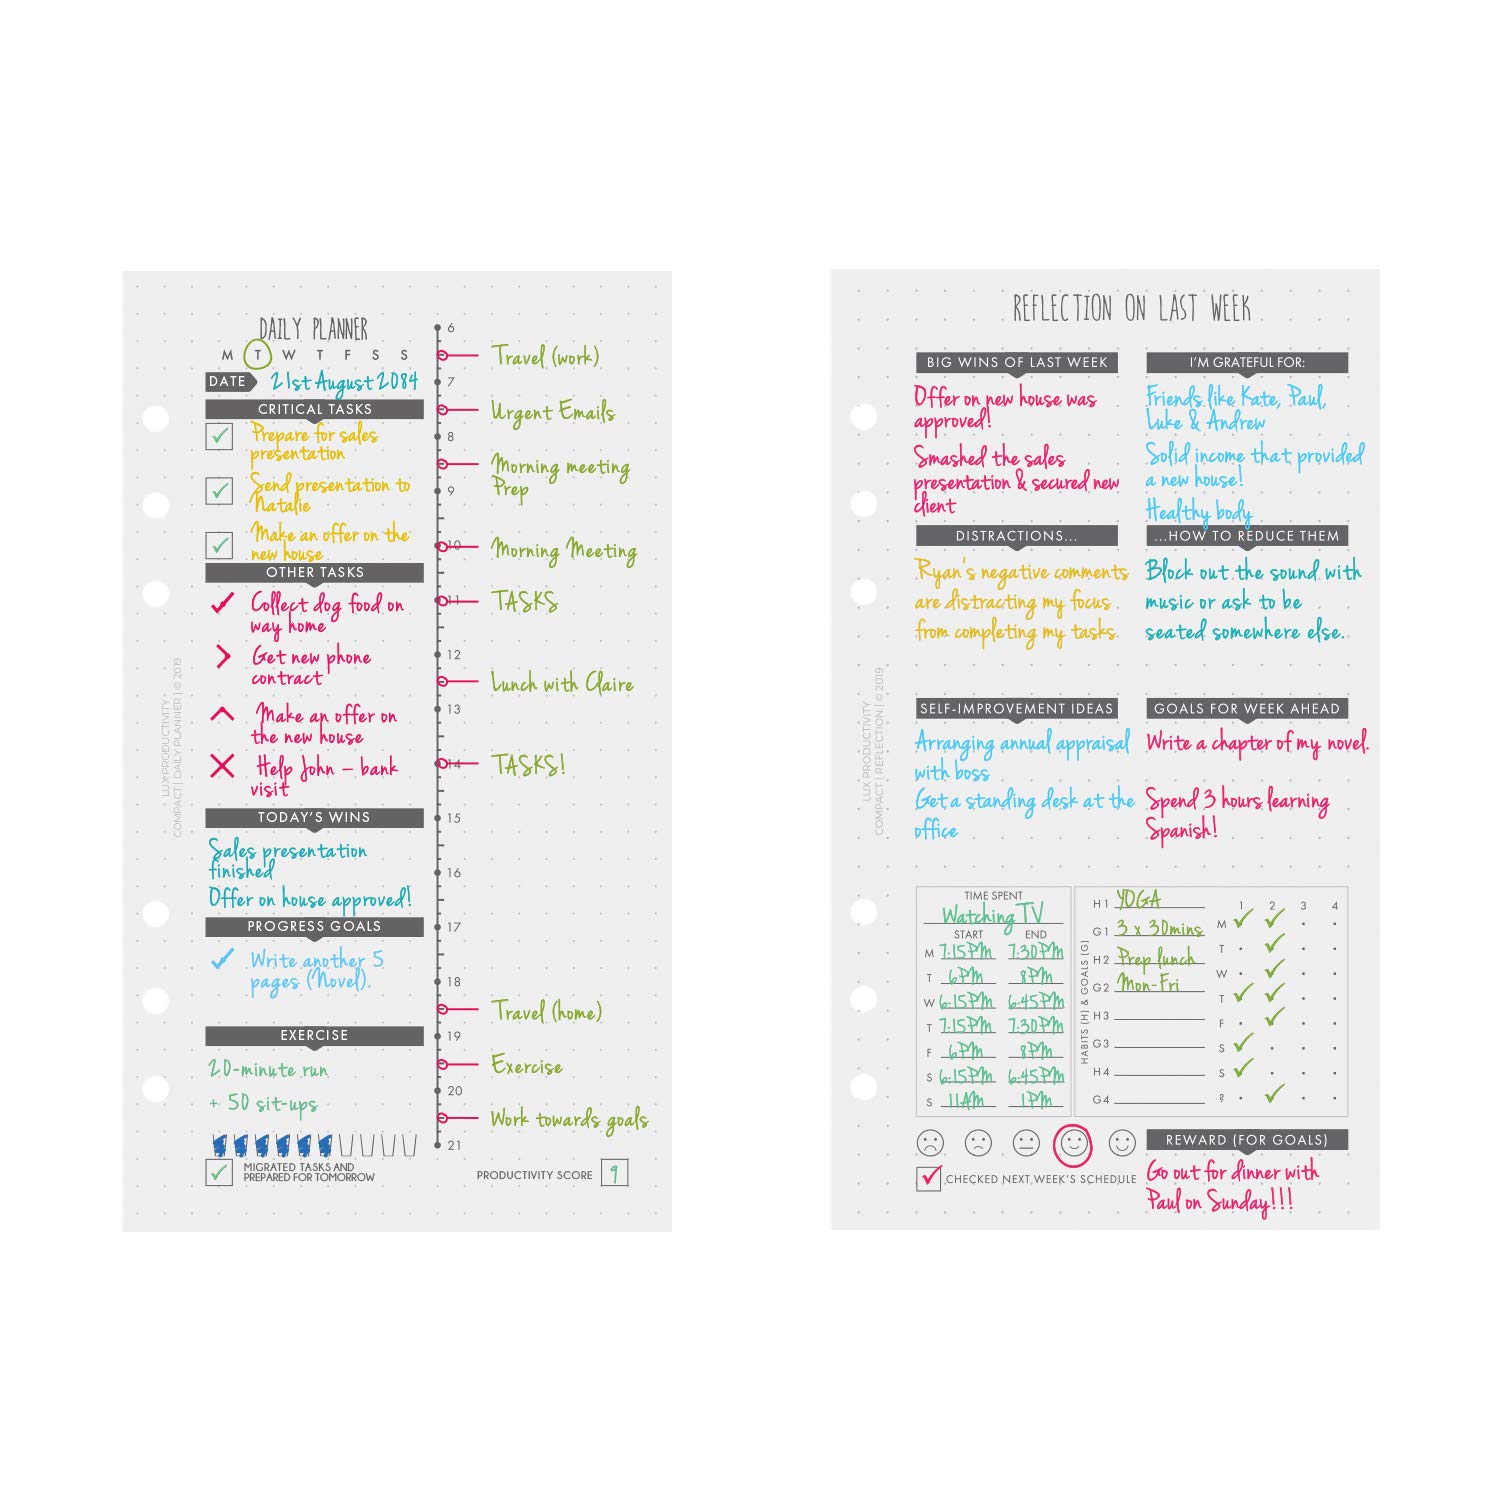 DAILY PLANNER
M T W T F S S
DATE 21st August 2084
CRITICAL TASKS
Prepare for sales
presentation
Send presentation to
Natalie
Make an offer on the
new house
OTHER TASKS
Collect dog food on
way home
Get new phone
contract
Make an offer on
the new house
Help John – bank
visit
TODAY'S WINS
Sales presentation
finished
Offer on house approved!
PROGRESS GOALS
Write another 5
pages (Novel).
EXERCISE
20-minute run
+ 50 sit-ups
MIGRATED TASKS AND
PREPARED FOR TOMORROW
6
Travel (work)
7
Urgent Emails
8
Morning meeting
Prep
9
10 Morning Meeting
11 TASKS
12
Lunch with Claire
13
14 TASKS!
15
16
17
18
Travel (home)
19
Exercise
20
Work towards goals
21
PRODUCTIVITY SCORE 9
LUX PRODUCTIVITY
COMPACT | DAILY PLANNER | © 2019
REFLECTION ON LAST WEEK
BIG WINS OF LAST WEEK
Offer on new house was
approved!
Smashed the sales
presentation & secured new
client
I'M GRATEFUL FOR:
Friends like Kate, Paul,
Luke & Andrew
Solid income that provided
a new house!
Healthy body
DISTRACTIONS...
Ryan's negative comments
are distracting my focus
from completing my tasks.
...HOW TO REDUCE THEM
Block out the sound with
music or ask to be
seated somewhere else.
SELF-IMPROVEMENT IDEAS
Arranging annual appraisal
with boss
Get a standing desk at the
office
GOALS FOR WEEK AHEAD
Write a chapter of my novel.
Spend 3 hours learning
Spanish!
TIME SPENT
Watching TV
START END
M 7:15PM 7:30PM
T 6PM 8PM
W 6:15PM 6:45PM
T 7:15PM 7:30PM
F 6PM 8PM
S 6:15PM 6:45PM
S 11AM 1PM
HABITS (H) & GOALS (G)
H1 YOGA
G1 3 x 30mins
H2 Prep lunch
G2 Mon-Fri
H3
G3
H4
G4
1 2 3 4
M
T
W
T
F
S
S
?
CHECKED NEXT WEEK'S SCHEDULE
REWARD (FOR GOALS)
Go out for dinner with
Paul on Sunday!!!
LUX PRODUCTIVITY
COMPACT | REFLECTION | © 2019